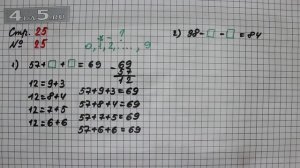 4БУДУ.RU
Стр. 25
№ 25
? 
0, 1, 2, ..., 9
1) 57+□+□=69
- 69
57
12
12=9+3
12=8+4
12=7+5
12=6+6
57+9+3=69
57+8+4=69
57+7+5=69
57+6+6=69
2) 98-□-□=84